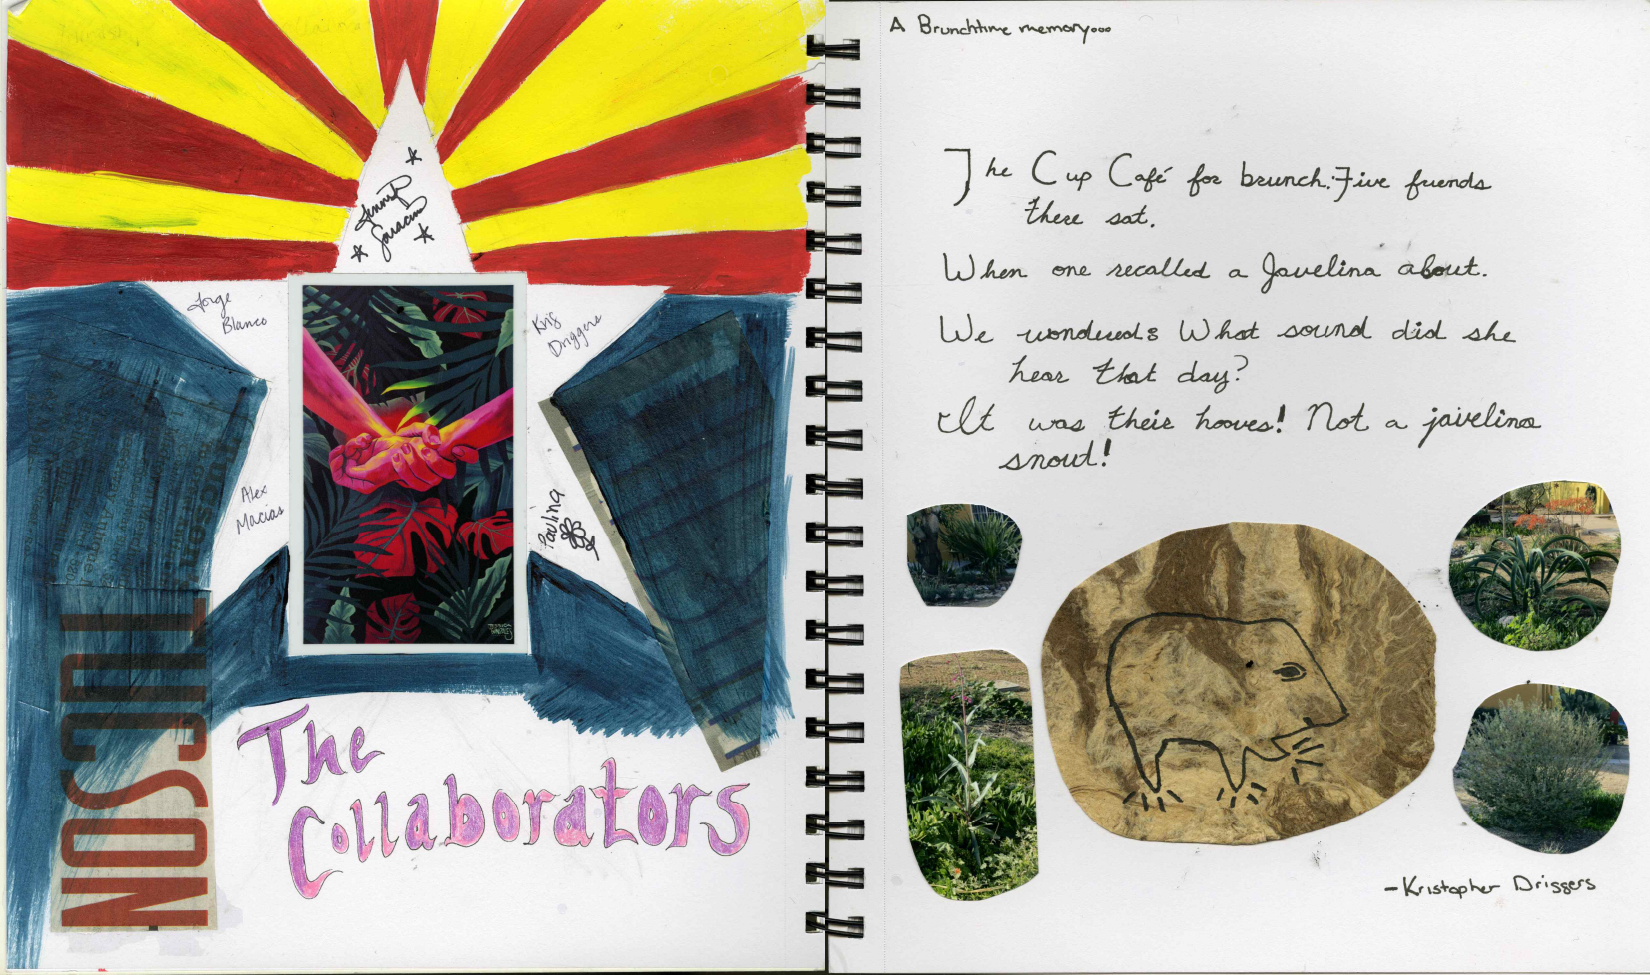 Jennifer
Saracino
Jorge
Blanco
Kris
Driggers
Alex
Macias
Paulina
TUCSON
The
Collaborators
A Brunchtime memory...
The Cup Café for brunch. Five friends
there sat.
When one recalled a Javelina about.
We wondered: What sound did she
hear that day?
It was their hooves! Not a javelina
snout!
-Kristopher Driggers